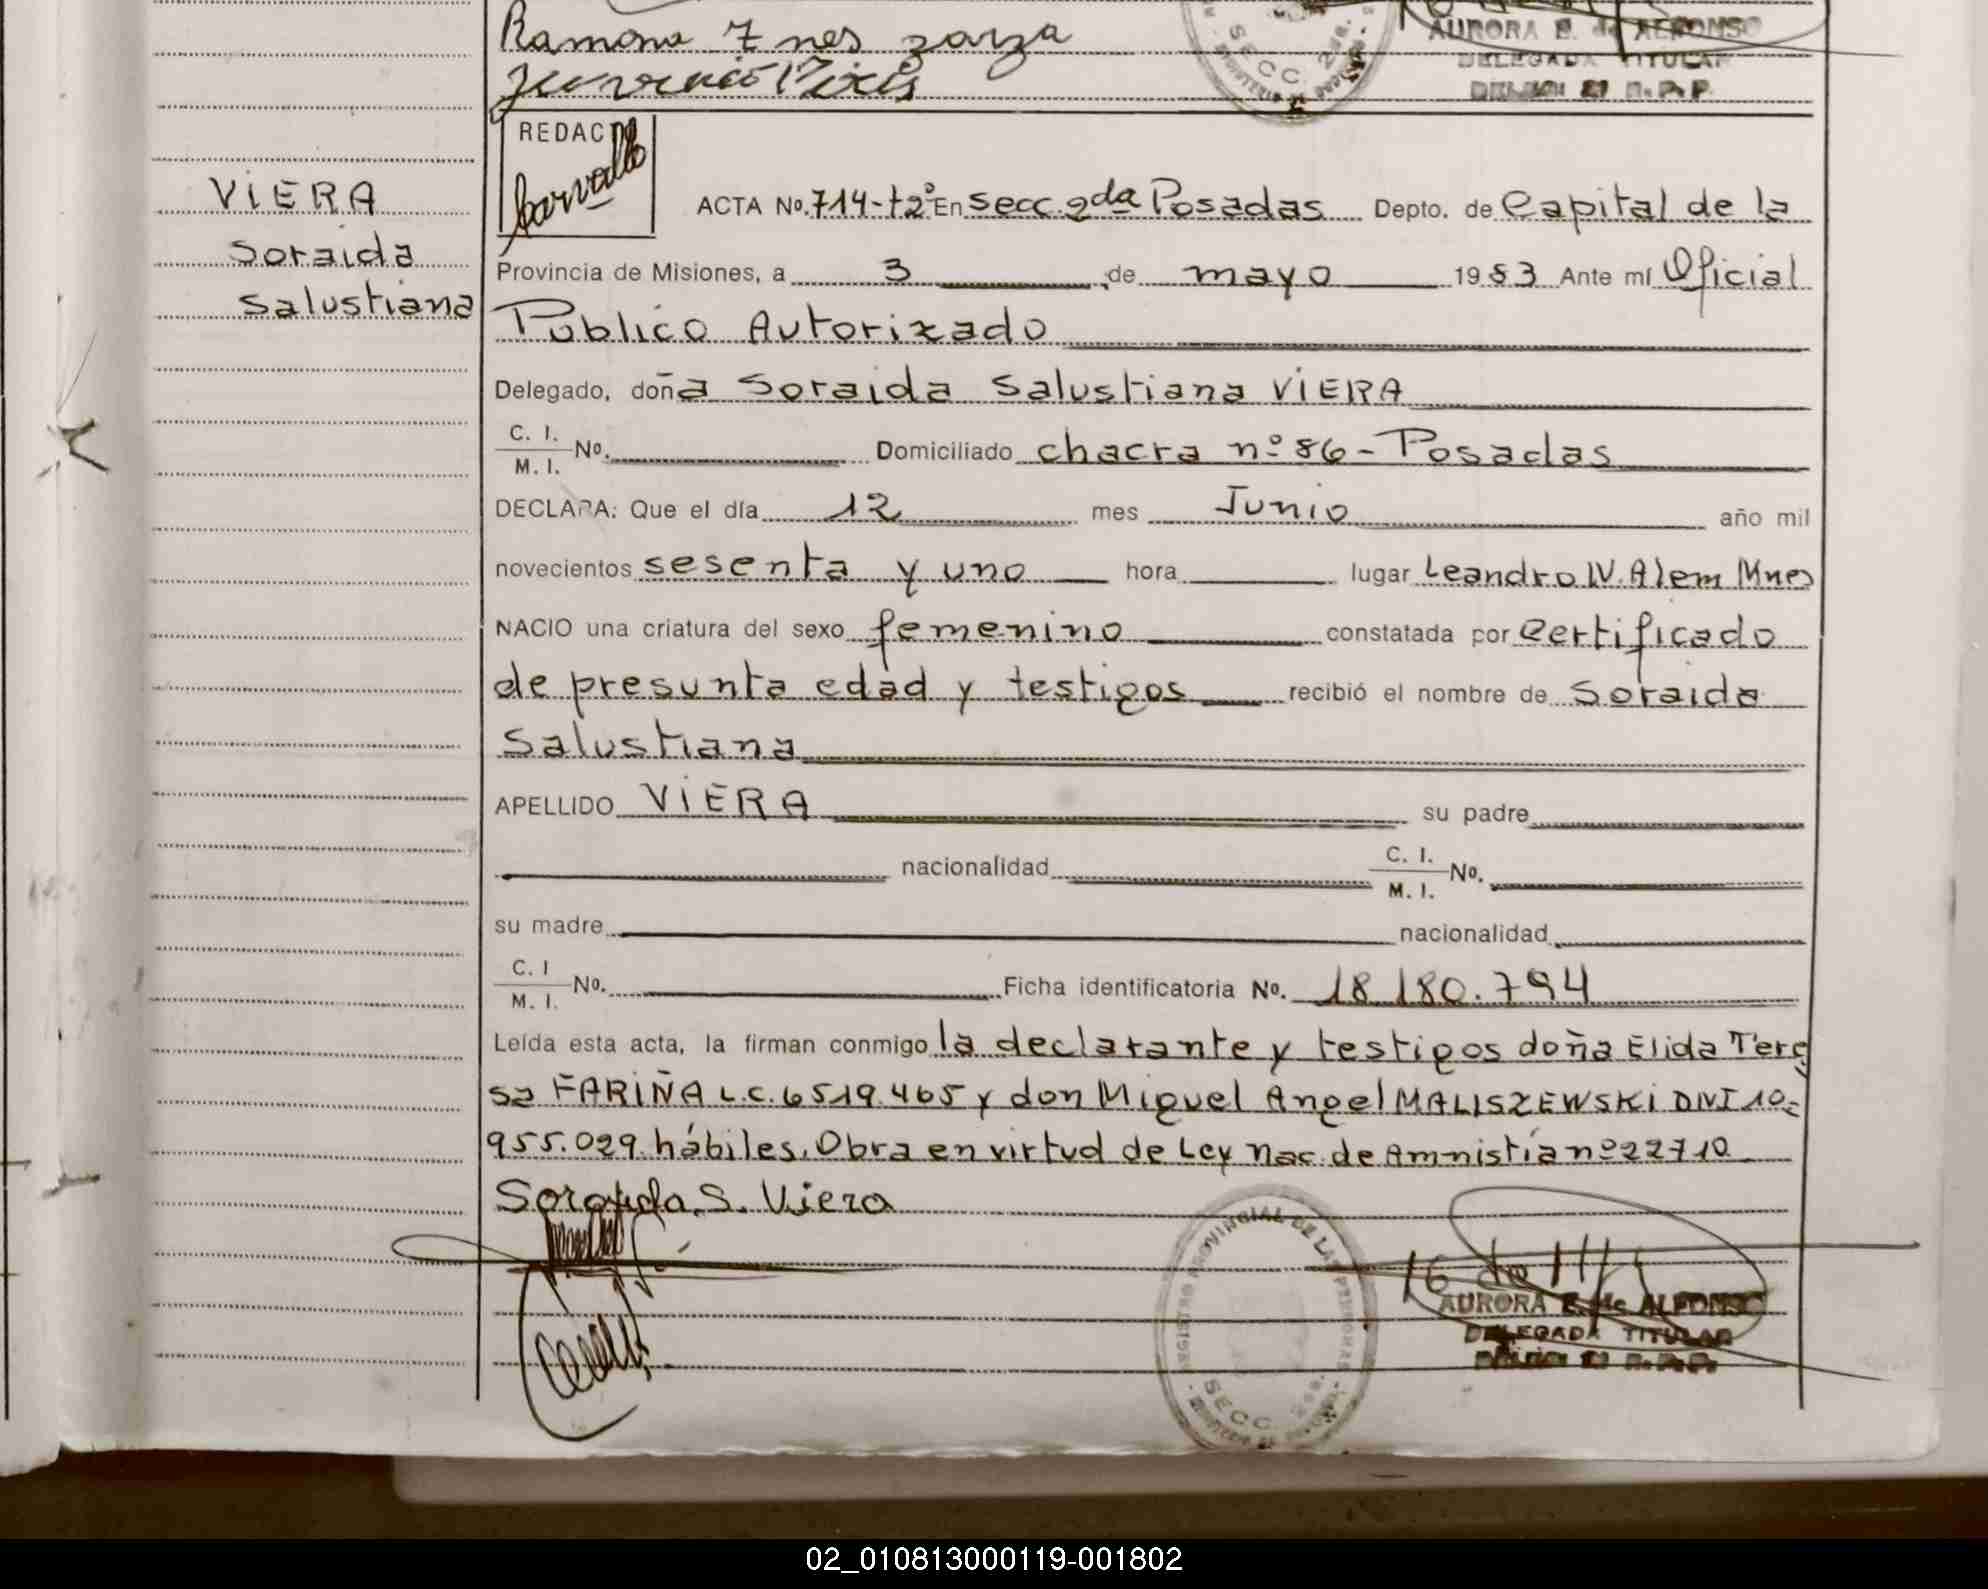 Ramona Ines zarza
AURORA E. de ALFONSO
DELEGADA TITULAR
REDAC
VIERA
Soraida
Salustiana
ACTA No. 714-t2º En secc. 2da Posadas Depto. de Capital de la
Provincia de Misiones, a 3 de mayo 1983 Ante mí Oficial
Público Autorizado
Delegado, doña Soraida Salustiana VIERA
C. I. / M. I. No. Domiciliado chacra nº 86 - Posadas
DECLARA: Que el día 12 mes Junio año mil
novecientos sesenta y uno hora lugar Leandro N. Alem Mnes
NACIO una criatura del sexo femenino constatada por Certificado
de presunta edad y testigos recibió el nombre de Soraida
Salustiana
APELLIDO VIERA su padre
nacionalidad C. I. / M. I. No.
su madre nacionalidad
C. I / M. I. No. Ficha identificatoria No. 18.180.794
Leída esta acta, la firman conmigo la declarante y testigos doña Elida Tere
sa FARIÑA L.C. 6519.465 y don Miguel Angel MALISZEWSKI DNI 10.
955.029 hábiles. Obra en virtud de Ley Nac. de Amnistía nº 22710
Soraida S. Viera
REGISTRO PROVINCIAL DE LAS PERSONAS
SECC. 2da.
AURORA E. de ALFONSO
DELEGADA TITULAR
02_010813000119-001802